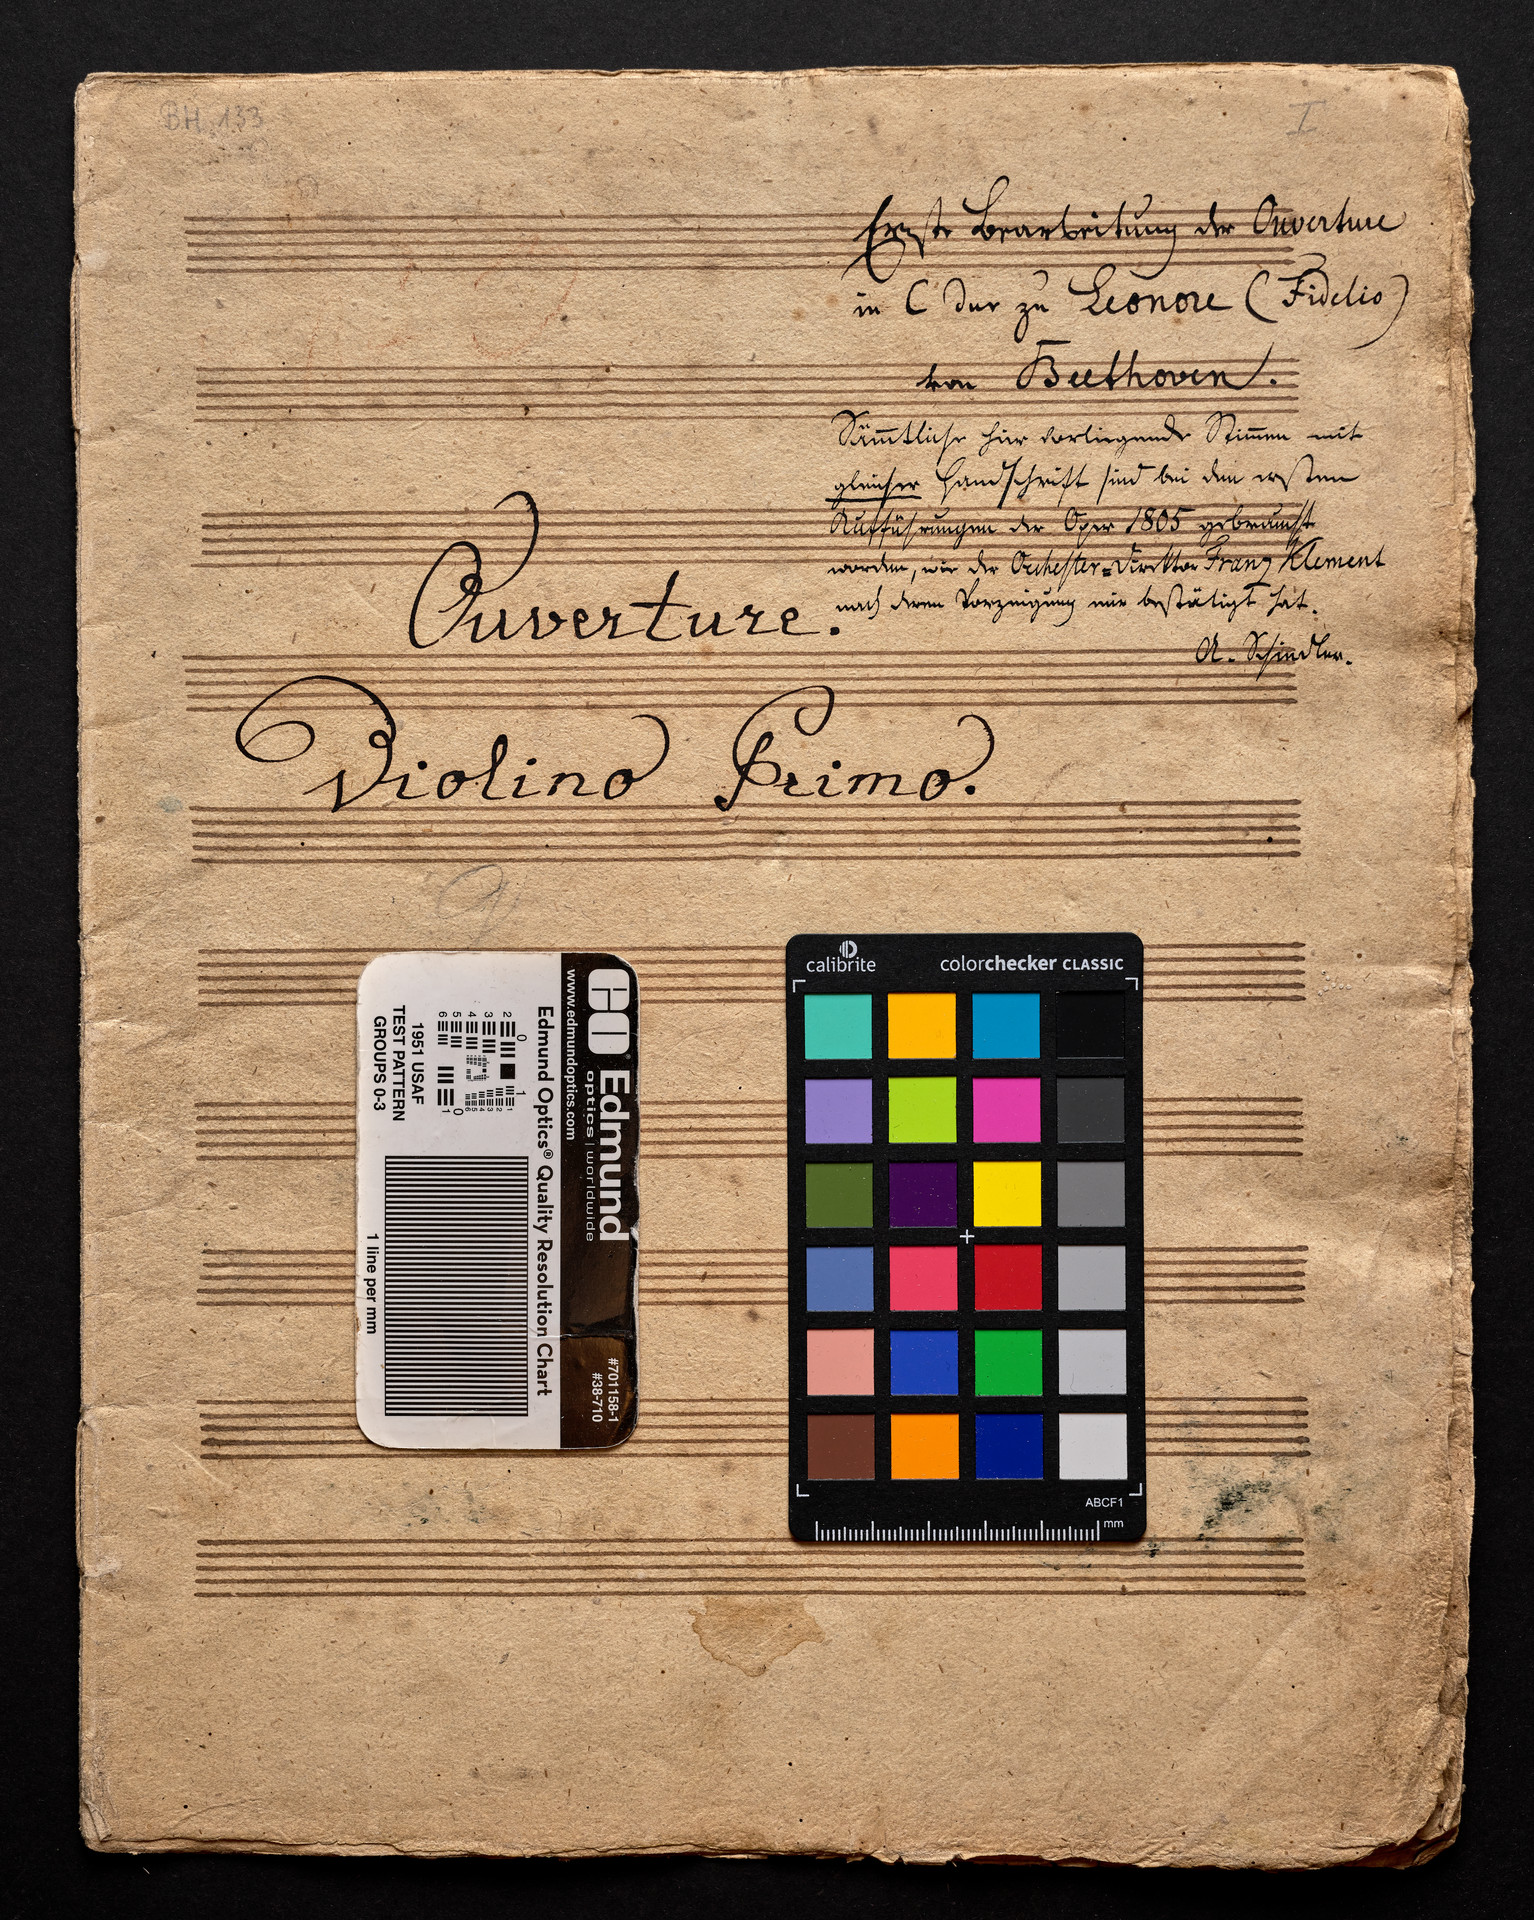 BH 133
I
Erste Bearbeitung der Ouverture
in C dur zu Leonore (Fidelio)
von Beethoven.
Sämtliche hier vorliegende Stimmen mit
gleicher Handschrift sind bei den ersten
Aufführungen der Oper 1805 gebraucht
worden, wie der Orchester-Direktor Franz Klement
nach deren Vorzeigung mir bestätigt hat.
A. Schindler.
Ouverture.
Violino Primo.
EO Edmund
optics | worldwide
www.edmundoptics.com
#701158-1
#38-710
Edmund Optics® Quality Resolution Chart
0 1
2 1
3 2
4 3
5 4
6 5
6
0
1
1951 USAF
TEST PATTERN
GROUPS 0-3
1 line per mm
calibrite
colorchecker CLASSIC
ABCF1
mm